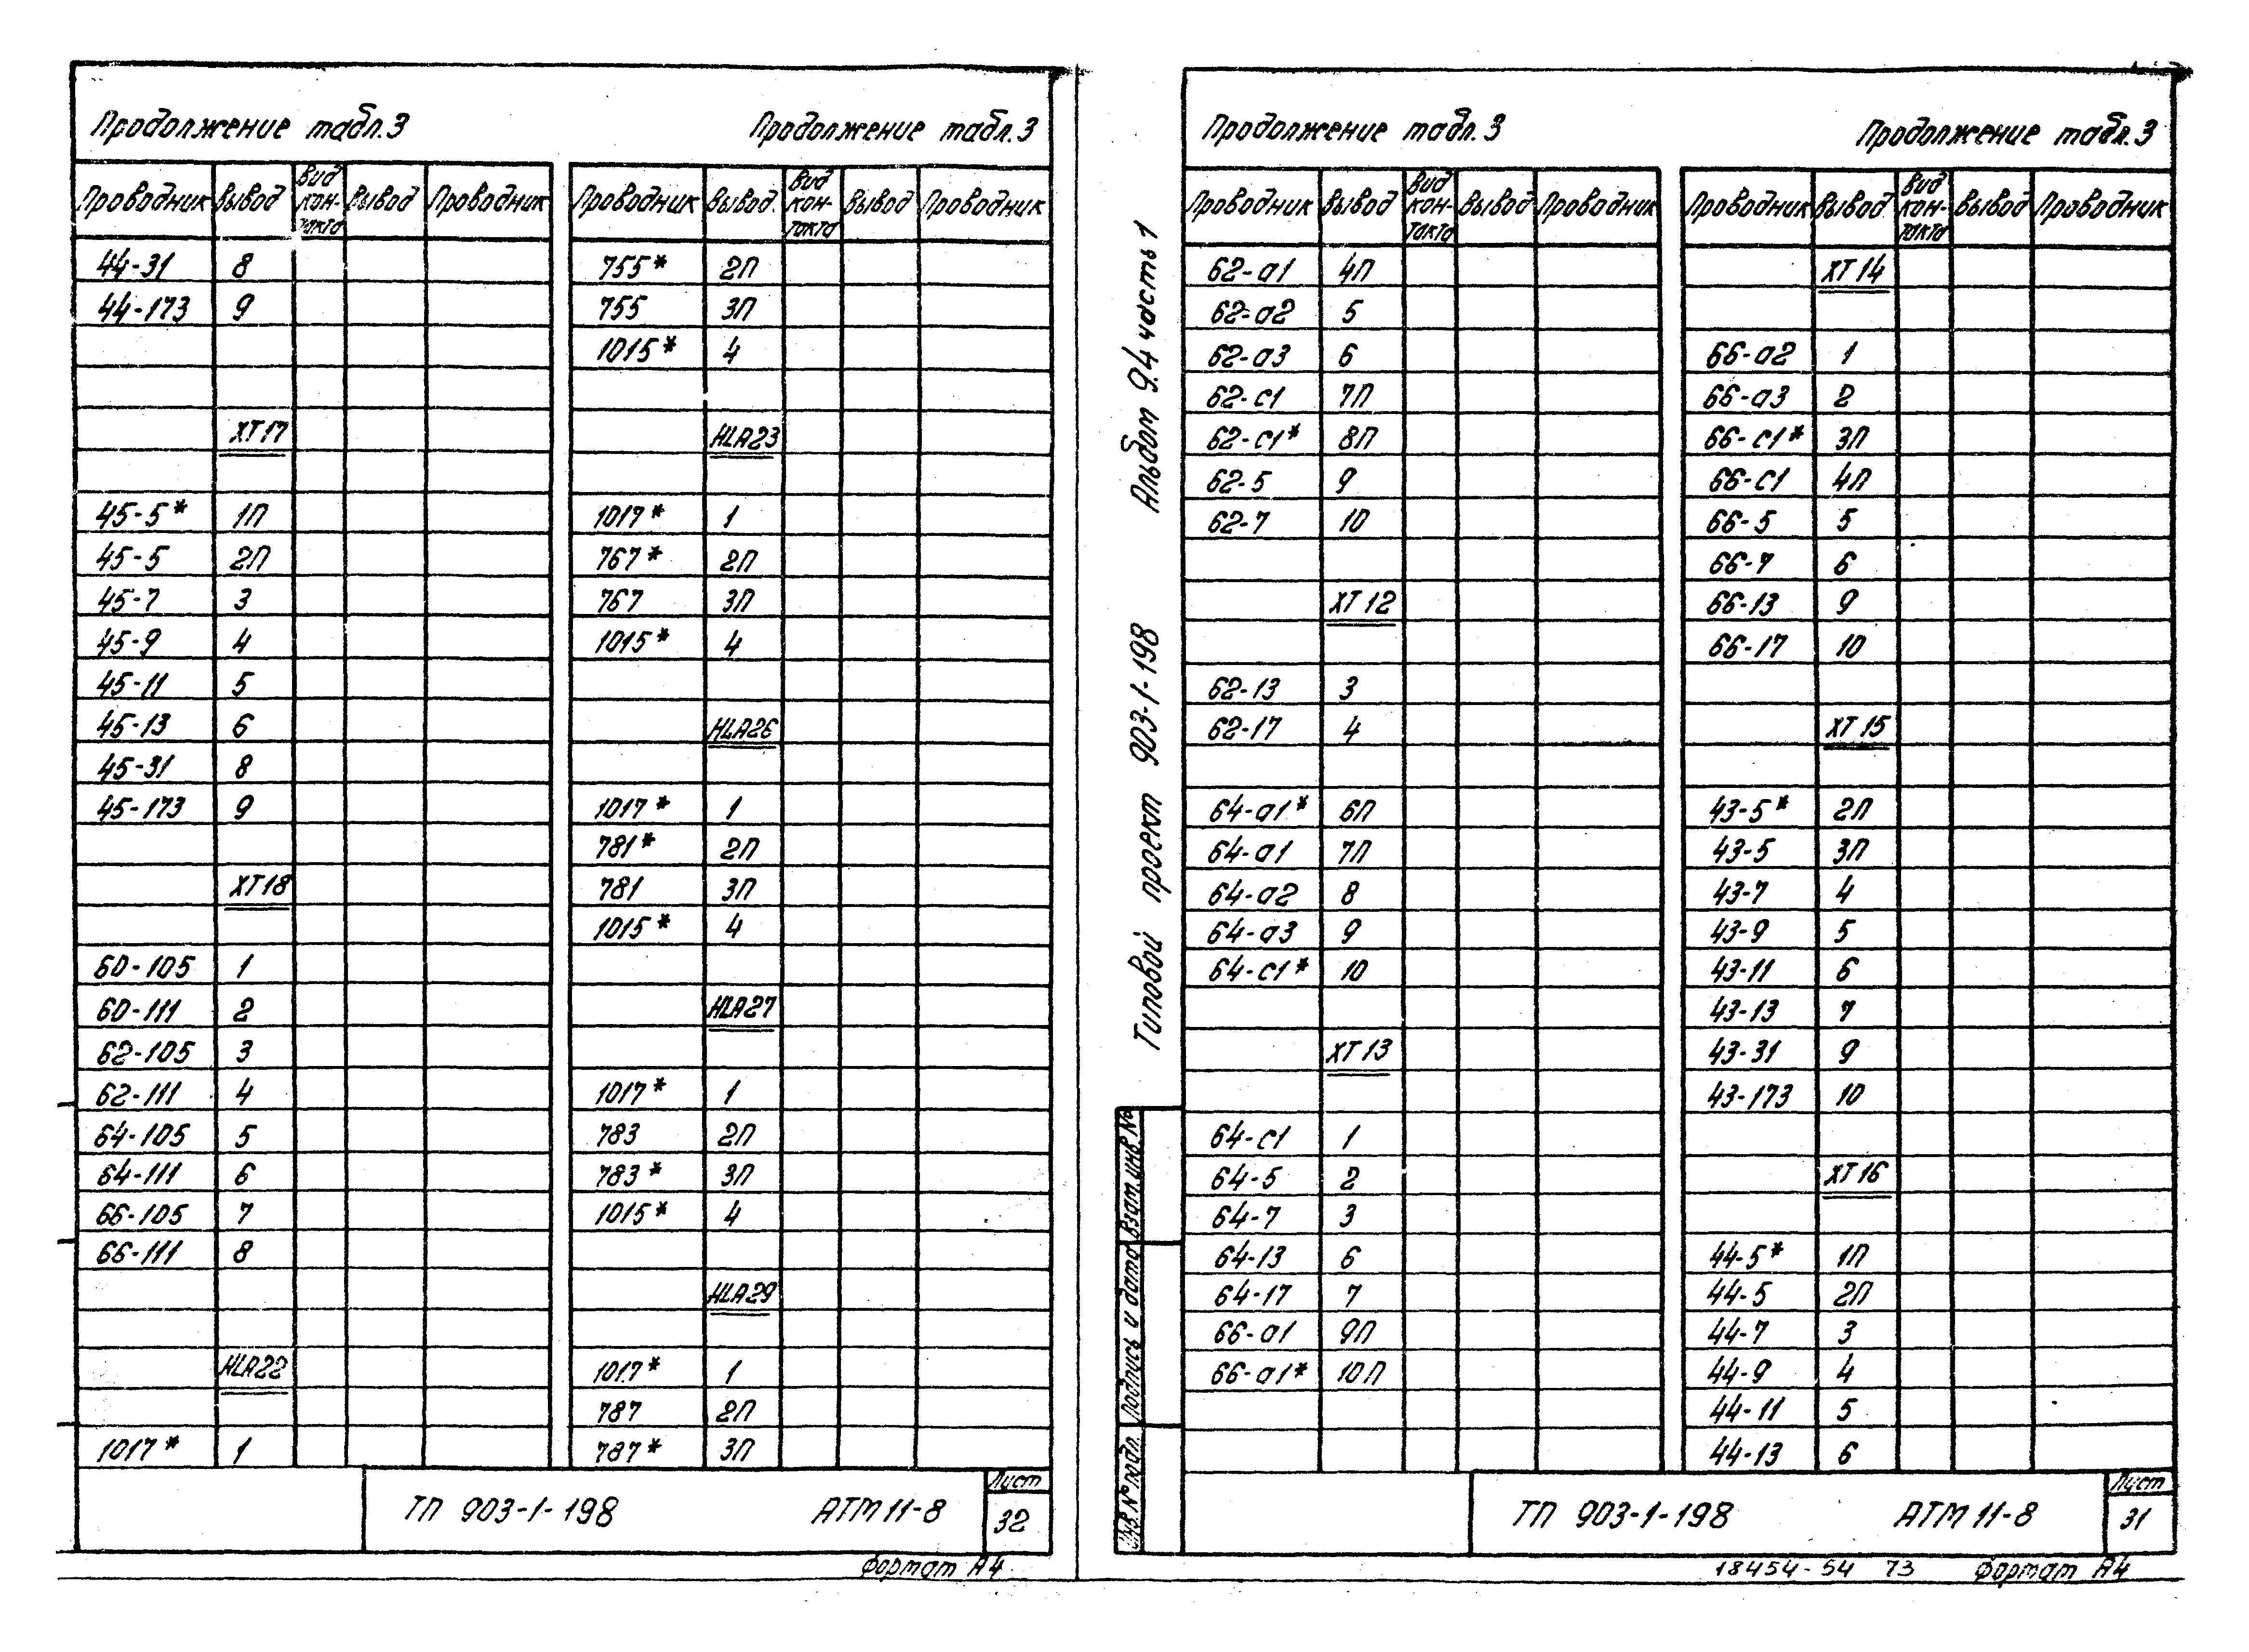 Продолжение табл.3
Проводник Вывод Вид кон-такта Вывод Проводник
44-31 8
44-173 9
ХТ17
45-5* 1П
45-5 2П
45-7 3
45-9 4
45-11 5
45-13 6
45-31 8
45-173 9
ХТ18
60-105 1
60-111 2
62-105 3
62-111 4
64-105 5
64-111 6
66-105 7
66-111 8
HLA22
1017* 1
Продолжение табл.3
Проводник Вывод Вид кон-такта Вывод Проводник
755* 2П
755 3П
1015* 4
HLA23
1017* 1
767* 2П
767 3П
1015* 4
HLA26
1017* 1
781* 2П
781 3П
1015* 4
HLA27
1017* 1
783 2П
783* 3П
1015* 4
HLA29
1017* 1
787 2П
787* 3П
ТП 903-1-198 АТМ11-8
Лист
32
Формат А4
Типовой проект 903-1-198 Альбом 9.4 часть 1
Инв.№подл. Подпись и дата Взам.инв.№
Продолжение табл.3
Проводник Вывод Вид кон-такта Вывод Проводник
62-а1 4П
62-а2 5
62-а3 6
62-с1 7П
62-с1* 8П
62-5 9
62-7 10
ХТ12
62-13 3
62-17 4
64-а1* 6П
64-а1 7П
64-а2 8
64-а3 9
64-с1* 10
ХТ13
64-с1 1
64-5 2
64-7 3
64-13 6
64-17 7
66-а1 9П
66-а1* 10П
Продолжение табл.3
Проводник Вывод Вид кон-такта Вывод Проводник
ХТ14
66-а2 1
66-а3 2
66-с1* 3П
66-с1 4П
66-5 5
66-7 6
66-13 9
66-17 10
ХТ15
43-5* 2П
43-5 3П
43-7 4
43-9 5
43-11 6
43-13 7
43-31 9
43-173 10
ХТ16
44-5* 1П
44-5 2П
44-7 3
44-9 4
44-11 5
44-13 6
ТП 903-1-198 АТМ11-8
Лист
31
18454-54 73 Формат А4